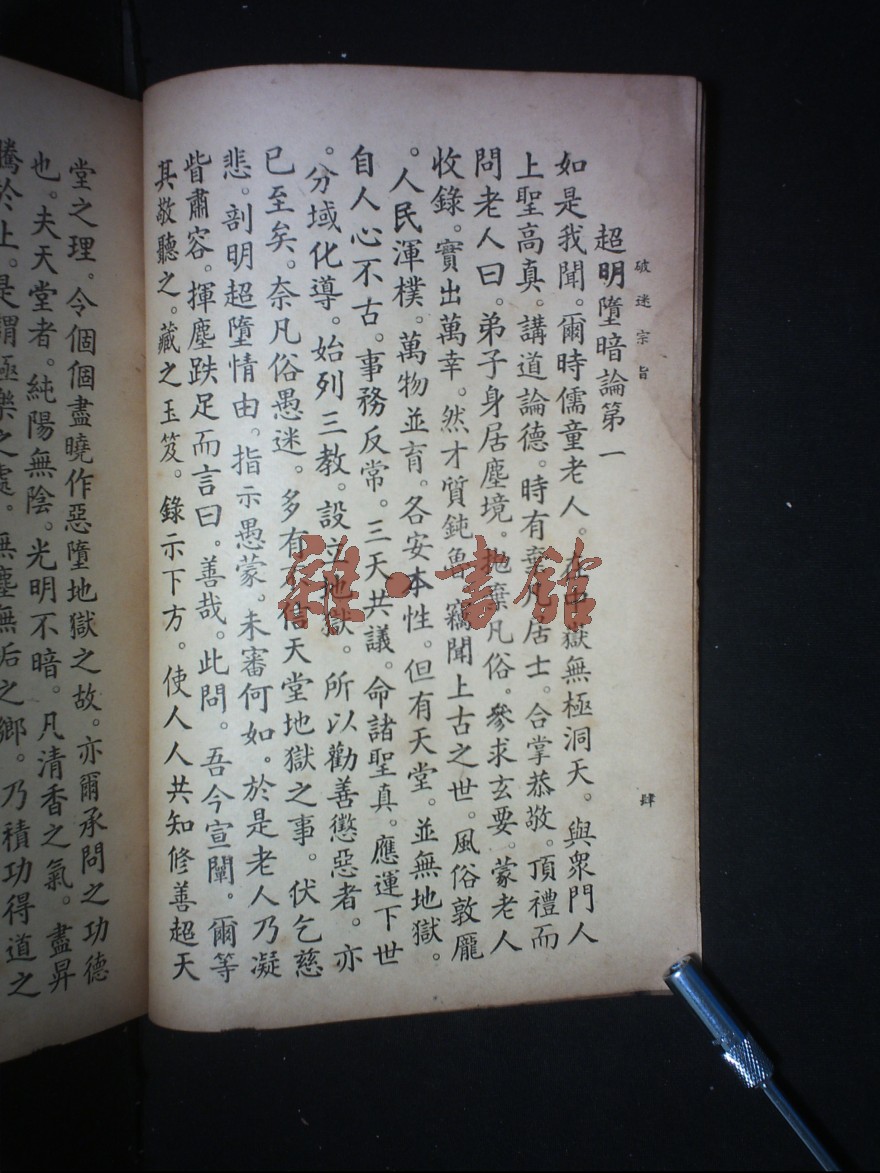 破迷宗旨
肆
超明墮暗論第一
如是我聞。爾時儒童老人。在中嶽無極洞天。與眾門人
上聖高真。講道論德。時有棄凡居士。合掌恭敬。頂禮而
問老人曰。弟子身居塵境。拋棄凡俗。參求玄要。蒙老人
收錄。實出萬幸。然才質鈍魯。竊聞上古之世。風俗敦龐
。人民渾樸。萬物並育。各安本性。但有天堂。並無地獄。
自人心不古。事務反常。三天共議。命諸聖真。應運下世
。分域化導。始列三教。設立地獄。所以勸善懲惡者。亦
已至矣。奈凡俗愚迷。多有不信天堂地獄之事。伏乞慈
悲。剖明超墮情由。指示愚蒙。未審何如。於是老人乃凝
眥肅容。揮塵跌足而言曰。善哉。此問。吾今宣闡。爾等
其敬聽之。藏之玉笈。錄示下方。使人人共知修善超天
堂之理。令個個盡曉作惡墮地獄之故。亦爾承問之功德
也。夫天堂者。純陽無陰。光明不暗。凡清香之氣。盡昇
騰於上。是謂極樂之處。無塵無垢之鄉。乃積功得道之
雜·書館